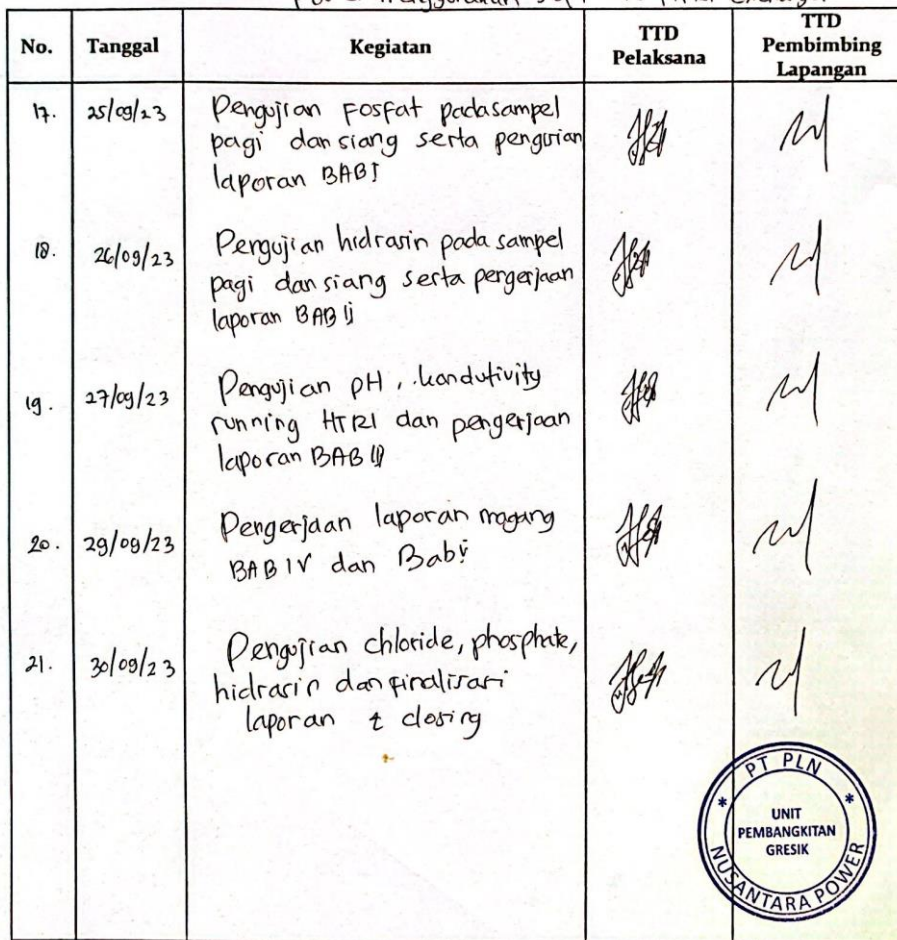 menggunakan
No. Tanggal Kegiatan TTD Pelaksana TTD Pembimbing Lapangan
17. 25/09/23 Pengujian Fosfat pada sampel
pagi dan siang serta
laporan BAB I
18. 26/09/23 Pengujian hidrasin pada sampel
pagi dan siang serta pengerjaan
laporan BAB II
19. 27/09/23 Pengujian pH, kondutivity
running HTRI dan pengerjaan
laporan BAB III
20. 29/09/23 Pengerjaan laporan magang
BAB IV dan Bab V
21. 30/09/23 Pengujian chloride, phosphate,
hidrasin dan finalisasi
laporan & closing
PT PLN
UNIT
PEMBANGKITAN
GRESIK
NUSANTARA POWER